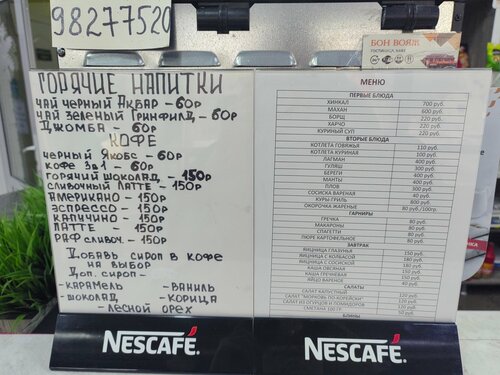 98277520
БОН ВОЯЖ
ГОРЯЧИЕ НАПИТКИ
ЧАЙ ЧЕРНЫЙ АКБАР – 60р
ЧАЙ ЗЕЛЕНЫЙ ГРИНФИЛД – 60р
ДЖОМБА – 60р
КОФЕ
ЧЕРНЫЙ ЯКОБС – 60р
КОФЕ 3в1 – 60р
ГОРЯЧИЙ ШОКОЛАД – 150р
СЛИВОЧНЫЙ ЛАТТЕ – 150р
АМЕРИКАНО – 150р
ЭСПРЕССО – 150р
КАПУЧИНО – 150р
ЛАТТЕ – 150р
РАФ СЛИВОЧ. – 150р
ДОБАВЬ СИРОП В КОФЕ
НА ВЫБОР
ДОП. СИРОП –
-КАРАМЕЛЬ - ВАНИЛЬ
-ШОКОЛАД - КОРИЦА
-ЛЕСНОЙ ОРЕХ
NESCAFÉ.
МЕНЮ
ПЕРВЫЕ БЛЮДА
ХИНКАЛ 700 руб
МАХАН 600 руб
БОРЩ 220 руб
ХАРЧО 220 руб
КУРИНЫЙ СУП 220 руб
ВТОРЫЕ БЛЮДА
КОТЛЕТА ГОВЯЖЬЯ 110 руб
КОТЛЕТА КУРИНАЯ 100 руб
ЛАГМАН 400 руб
ГУЛЯШ 300 руб
БЕРЕГИ 400 руб
МАНТЫ 400 руб
ПЛОВ 300 руб
СОСИСКА ВАРЕНАЯ 40 руб
КУРЫ ГРИЛЬ 600 руб
ОКОРОЧКА ЖАРЕНЫЕ 80 руб/100гр.
ГАРНИРЫ
ГРЕЧКА 80 руб
МАКАРОНЫ 80 руб
СПАГЕТТИ 80 руб
ПЮРЕ КАРТОФЕЛЬНОЕ 80 руб
ЗАВТРАК
ЯИЧНИЦА ГЛАЗУНЬЯ 150 руб
ЯИЧНИЦА С КОЛБАСОЙ 180 руб
ЯИЧНИЦА С СОСИСКОЙ 180 руб
КАША ОВСЯНАЯ 150 руб
КАША ГРЕЧНЕВАЯ 150 руб
ЯЙЦО ВАРЕНОЕ 40 руб
САЛАТЫ
САЛАТ КАПУСТНЫЙ 120 руб
САЛАТ "МОРКОВЬ ПО-КОРЕЙСКИ" 120 руб
САЛАТ ИЗ ОГУРЦОВ И ПОМИДОРОВ 120 руб
СМЕТАНА 100 ГР. 50 руб
БЛИНЫ
NESCAFÉ.